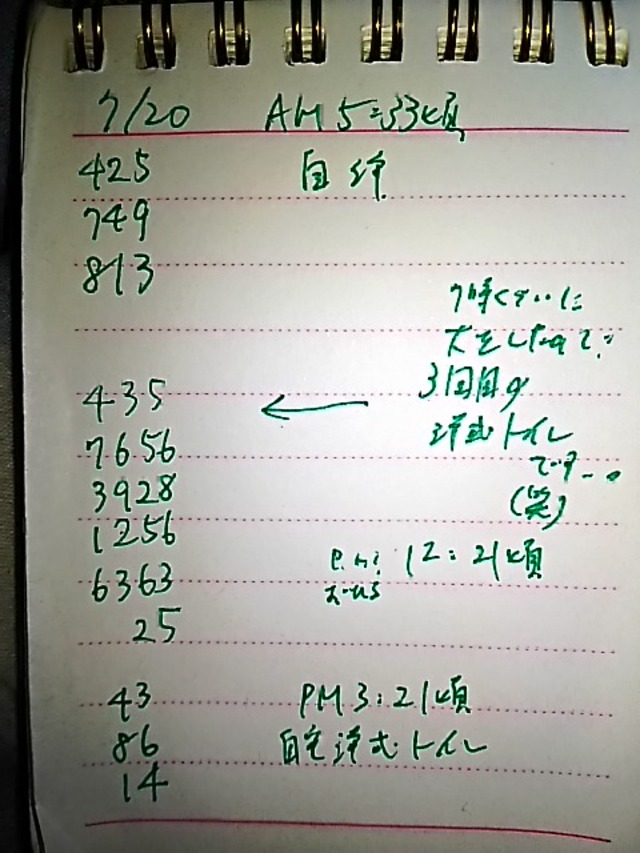 7/20 AM 5:33頃
425
749
813
435
7656
3928
1256
6363
25
7時くらいに
大をしたので
3回目の
洋式トイレ
です...。
(笑)
12:21頃
43 PM 3:21頃
86 自宅洋式トイレ
14